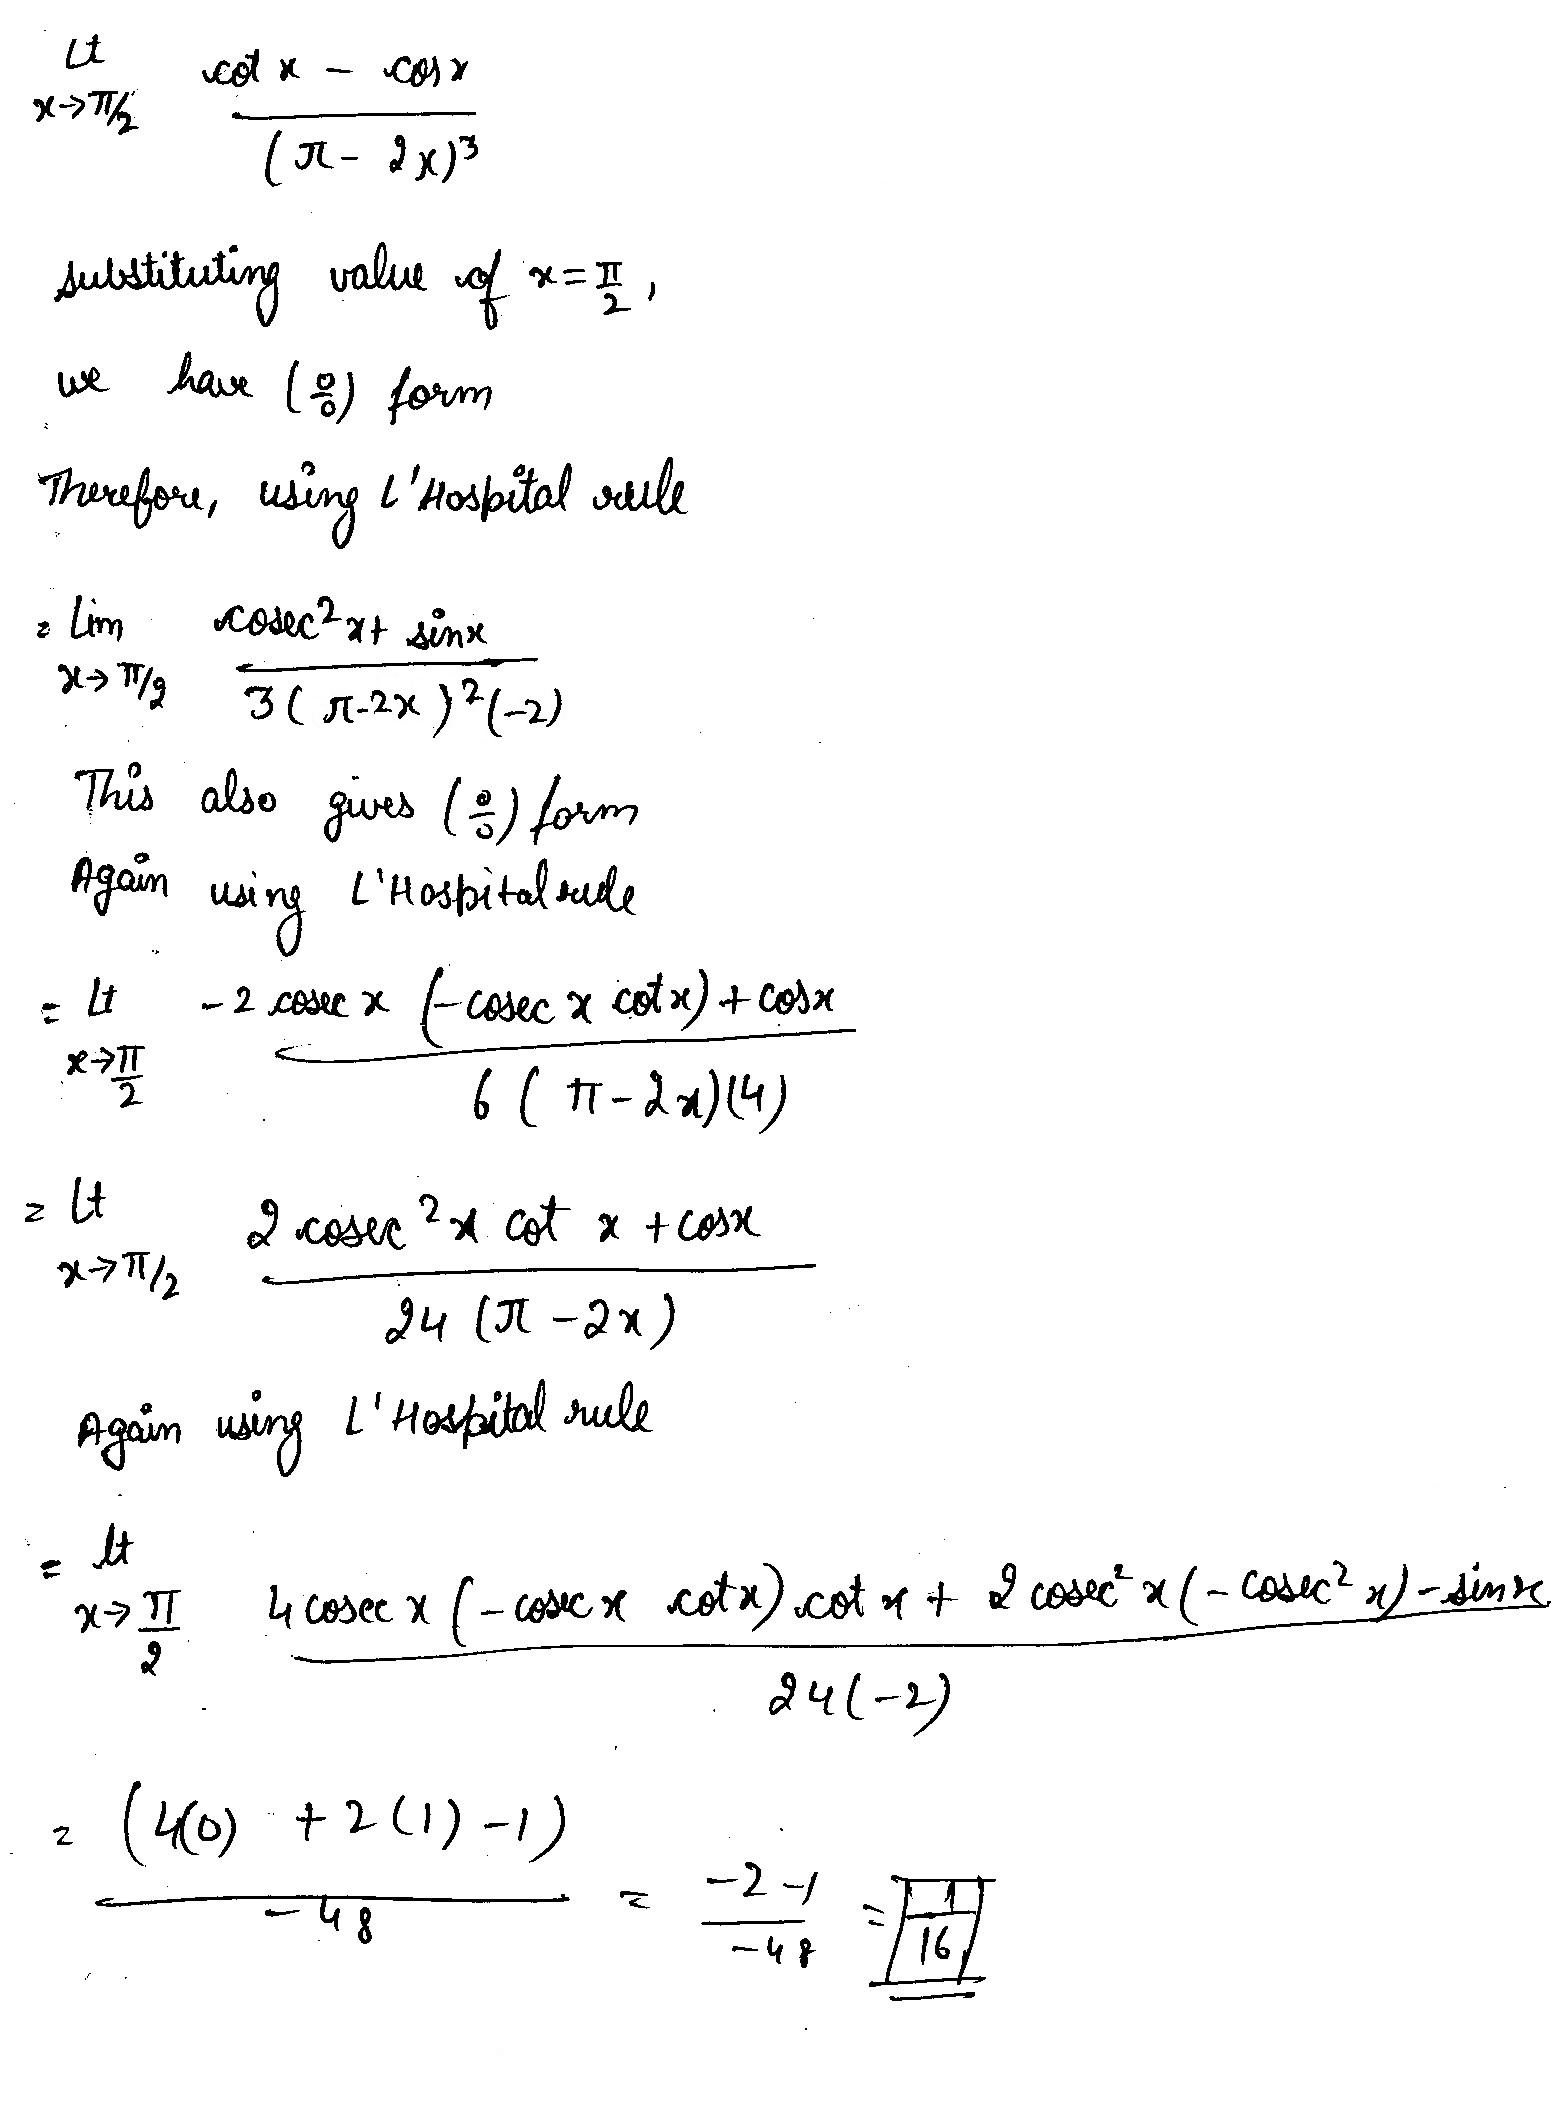 Lt x→π/2 (cot x - cos x)/(π - 2x)³
substituting value of x = π/2,
we have (0/0) form
Therefore, using L'Hospital rule
= Lim x→π/2 (cosec²x + sinx)/(3(π-2x)²(-2))
This also gives (0/0) form
Again using L'Hospital rule
= Lt x→π/2 (-2 cosec x (-cosec x cot x) + cosx)/(6(π-2x)(4))
= Lt x→π/2 (2 cosec²x cot x + cosx)/(24(π-2x))
Again using L'Hospital rule
= lt x→π/2 (4 cosec x (-cosec x cot x) cot x + 2 cosec²x (-cosec²x) - sinx)/(24(-2))
= (4(0) + 2(1) - 1)/(-48) = (-2-1)/(-48) = 1/16